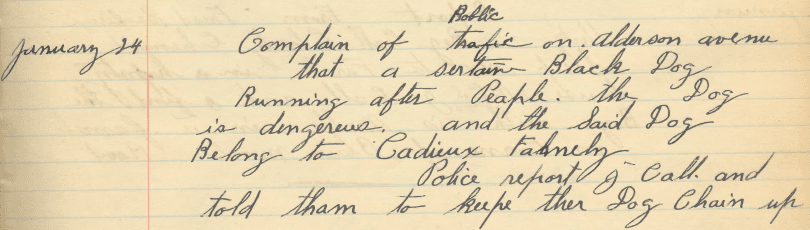 Public
January 24 Complain of trafic on. Alderson avenu
that a sertain Black Dog
Running after Peaple. the Dog
is dengereus. and the Said Dog
Belong to Cadieux
Police report I Call. and
told tham to keepe ther Dog Chain up